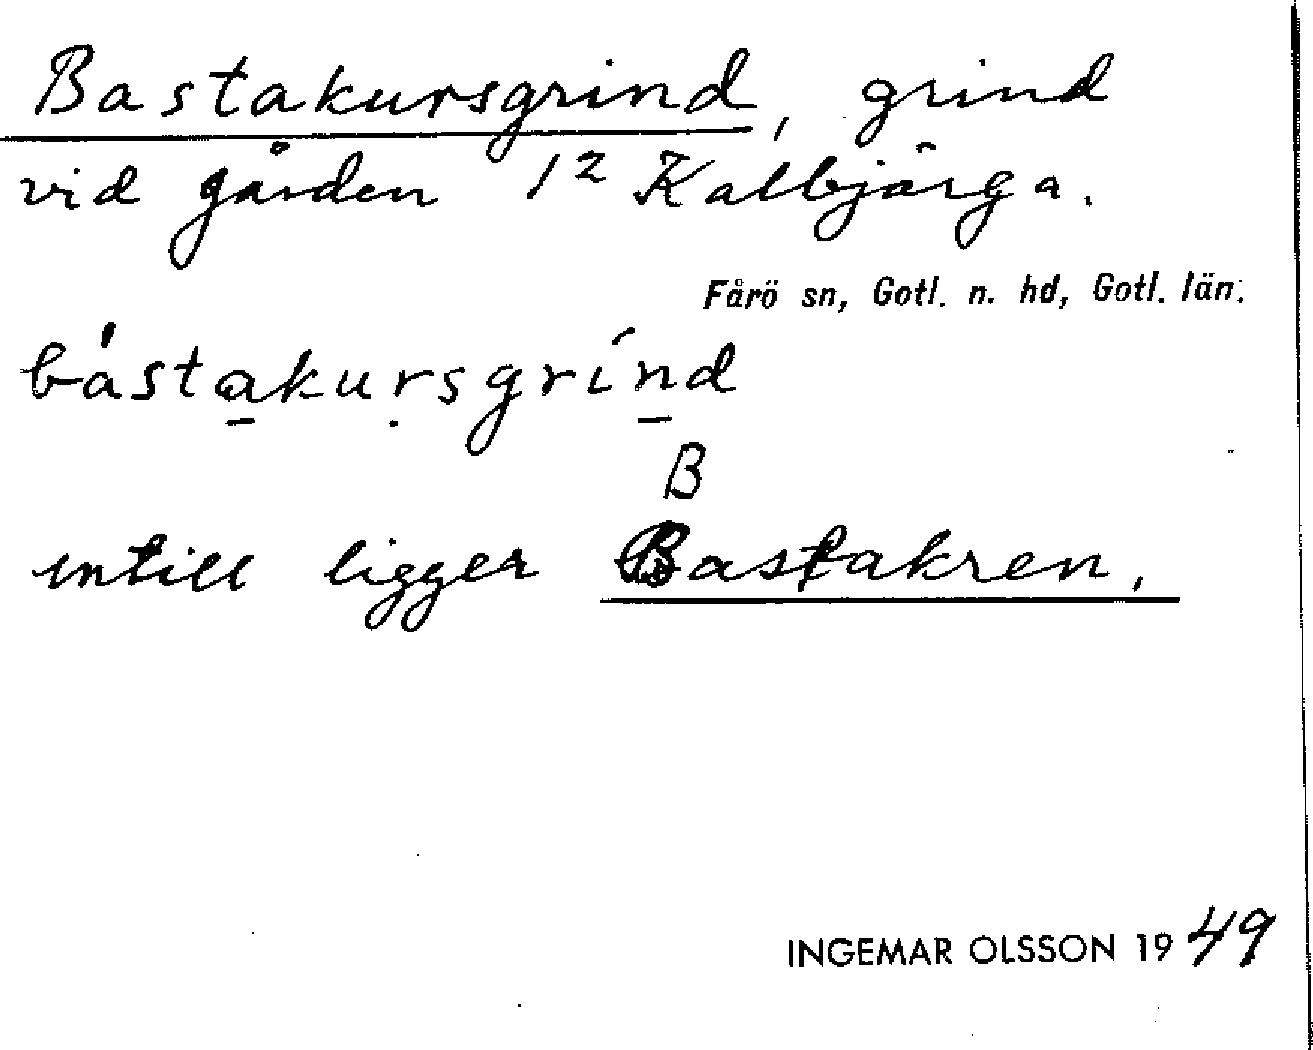 Bastakursgrind, grind
vid gården 1² Kalbjärga.
Fårö sn, Gotl. n. hd, Gotl. län.
bástakursgrínd
B
intill ligger Bastakren,
INGEMAR OLSSON 1949